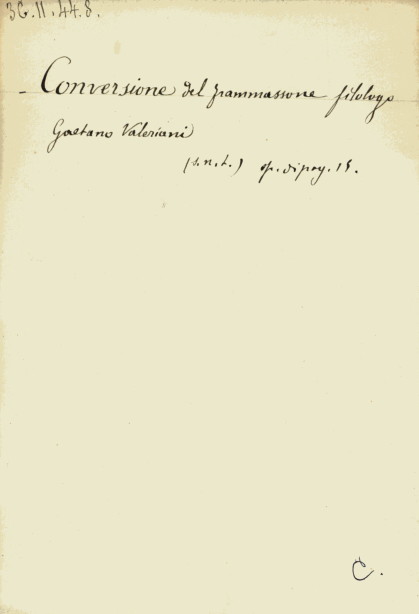 36.11.44.8.
- Conversione del frammassone filologo
Gaetano Valeriani
(s.n.t.) op. di pag. 15.
C.